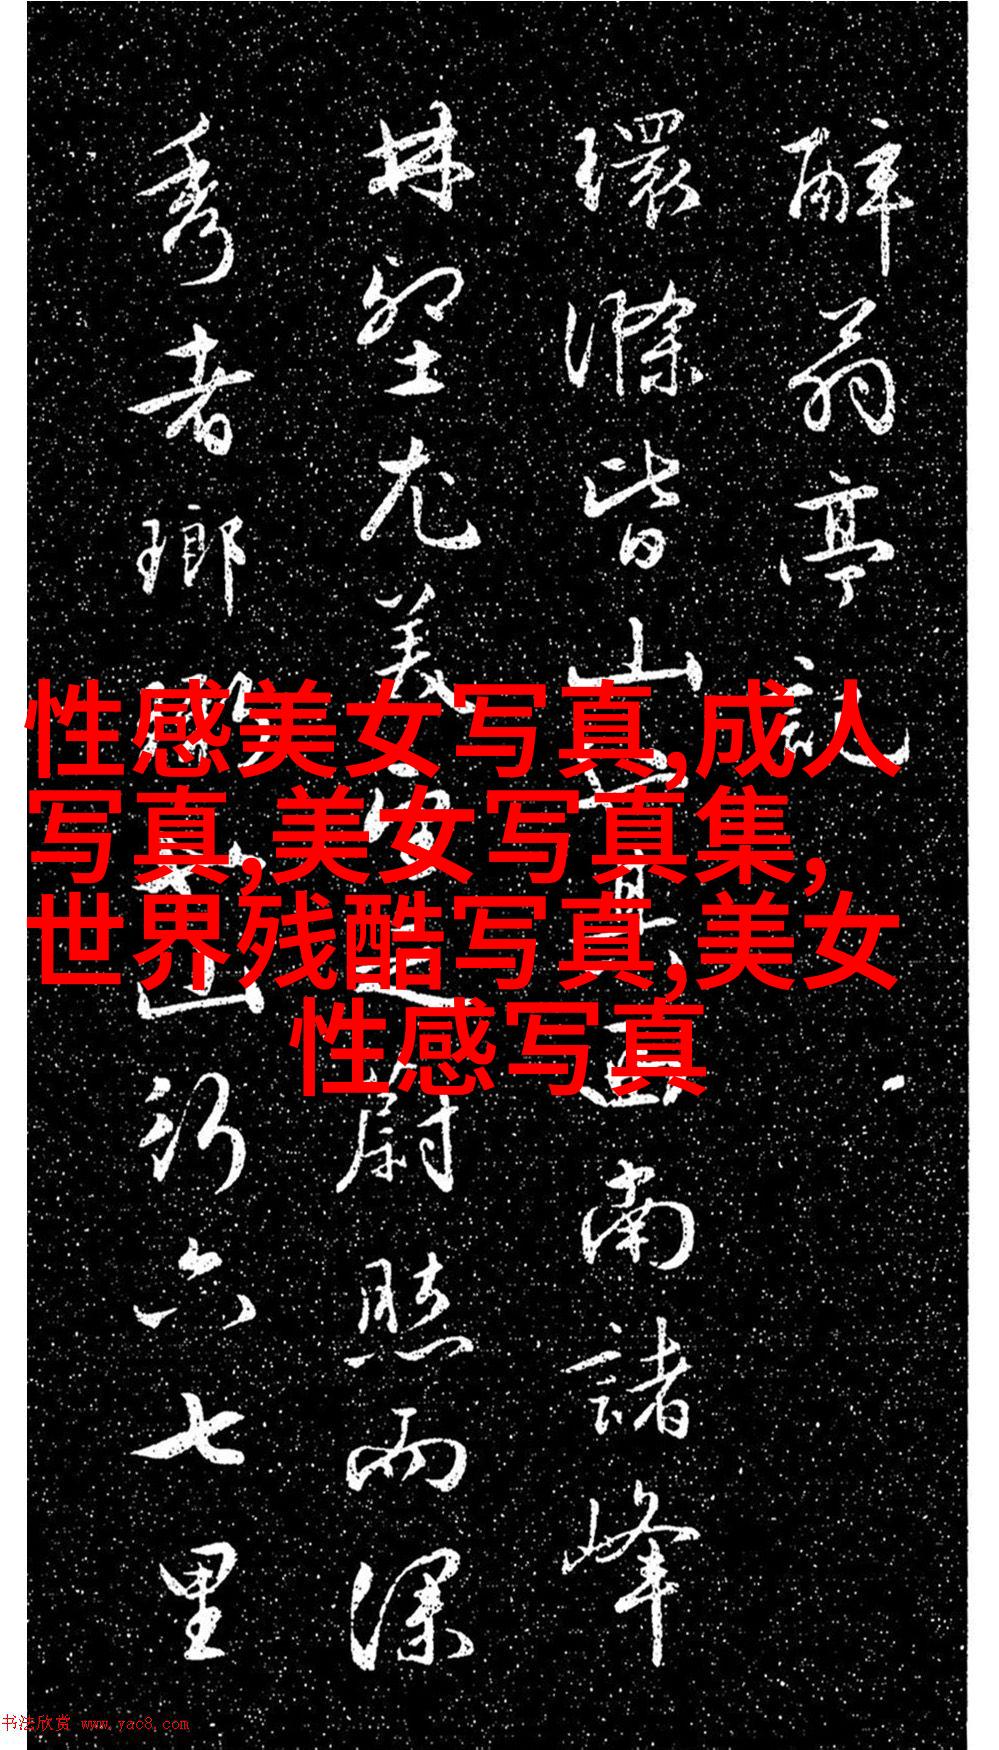 醉翁亭記
環滁皆山也其西南諸峰
林壑尤美望之蔚然而深
秀者瑯琊也山行六七里
性感美女写真,成人
写真,美女写真集,
世界残酷写真,美女
性感写真
书法欣赏 www.yac8.com